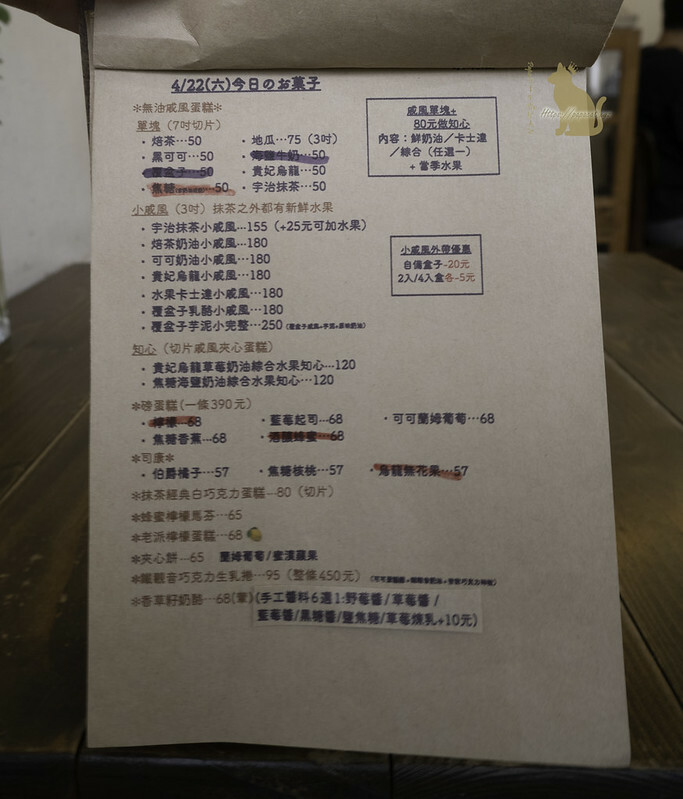 4/22(六)今日のお菓子
＊無油戚風蛋糕＊
單塊（7吋切片）
・焙茶…50
・地瓜…75（3吋）
・黑可可…50
・海鹽牛奶…50
・覆盆子…50
・貴妃烏龍…50
・焦糖…50
・宇治抹茶…50
戚風單塊+
80元做知心
內容：鮮奶油/卡士達
/綜合（任選一）
+ 當季水果
小戚風（3吋）抹茶之外都有新鮮水果
・宇治抹茶小戚風…155（+25元可加水果）
・焙茶奶油小戚風…180
・可可奶油小戚風…180
・貴妃烏龍小戚風…180
・水果卡士達小戚風…180
・覆盆子乳酪小戚風…180
・覆盆子芋泥小完整…250
小戚風外帶優惠
自備盒子-20元
2入/4入盒各-5元
知心（切片戚風夾心蛋糕）
・貴妃烏龍草莓奶油綜合水果知心…120
・焦糖海鹽奶油綜合水果知心…120
＊磅蛋糕(一條390元)
・檸檬…68
・藍莓起司…68
・可可蘭姆葡萄…68
・焦糖香蕉…68
・酒釀蜂蜜…68
＊司康＊
・伯爵橘子…57
・焦糖核桃…57
・烏龍無花果…57
＊抹茶經典白巧克力蛋糕…80（切片）
＊蜂蜜檸檬馬芬…65
＊老派檸檬蛋糕…68
＊夾心餅…65 蘭姆葡萄/蜜漬蘋果
＊鐵觀音巧克力生乳捲…95（整條450元）
＊香草籽奶酪…68(葷)(手工醬料6選1:野莓醬/草莓醬/
藍莓醬/黑糖醬/鹽焦糖/草莓煉乳+10元)